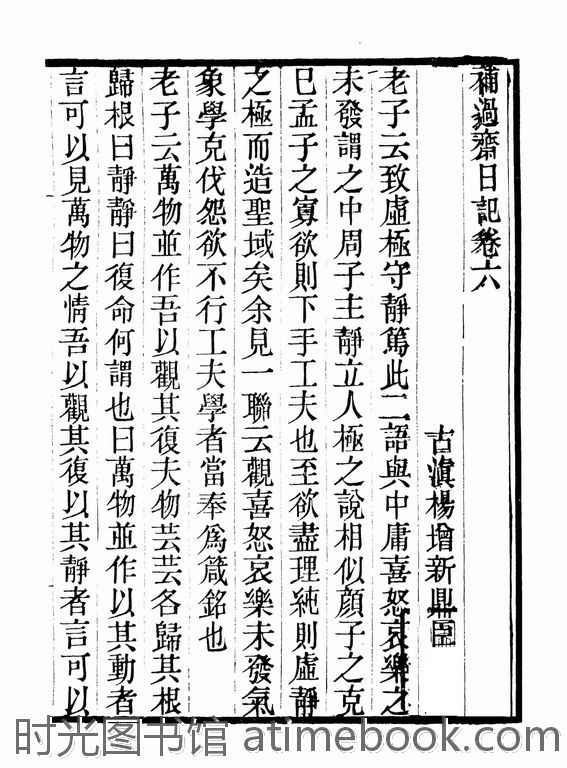 補過齋日記卷六
古滇楊增新鼎臣
老子云致虛極守靜篤此二語與中庸喜怒哀樂之
未發謂之中周子主靜立人極之說相似顏子之克
已孟子之寡欲則下手工夫也至欲盡理純則虛靜
之極而造聖域矣余見一聯云觀喜怒哀樂未發氣
象學克伐怨欲不行工夫學者當奉爲箴銘也
老子云萬物並作吾以觀其復夫物芸芸各歸其根
歸根曰靜靜曰復命何謂也曰萬物並作以其動者
言可以見萬物之情吾以觀其復以其靜者言可以
时光图书馆 atimebook.com